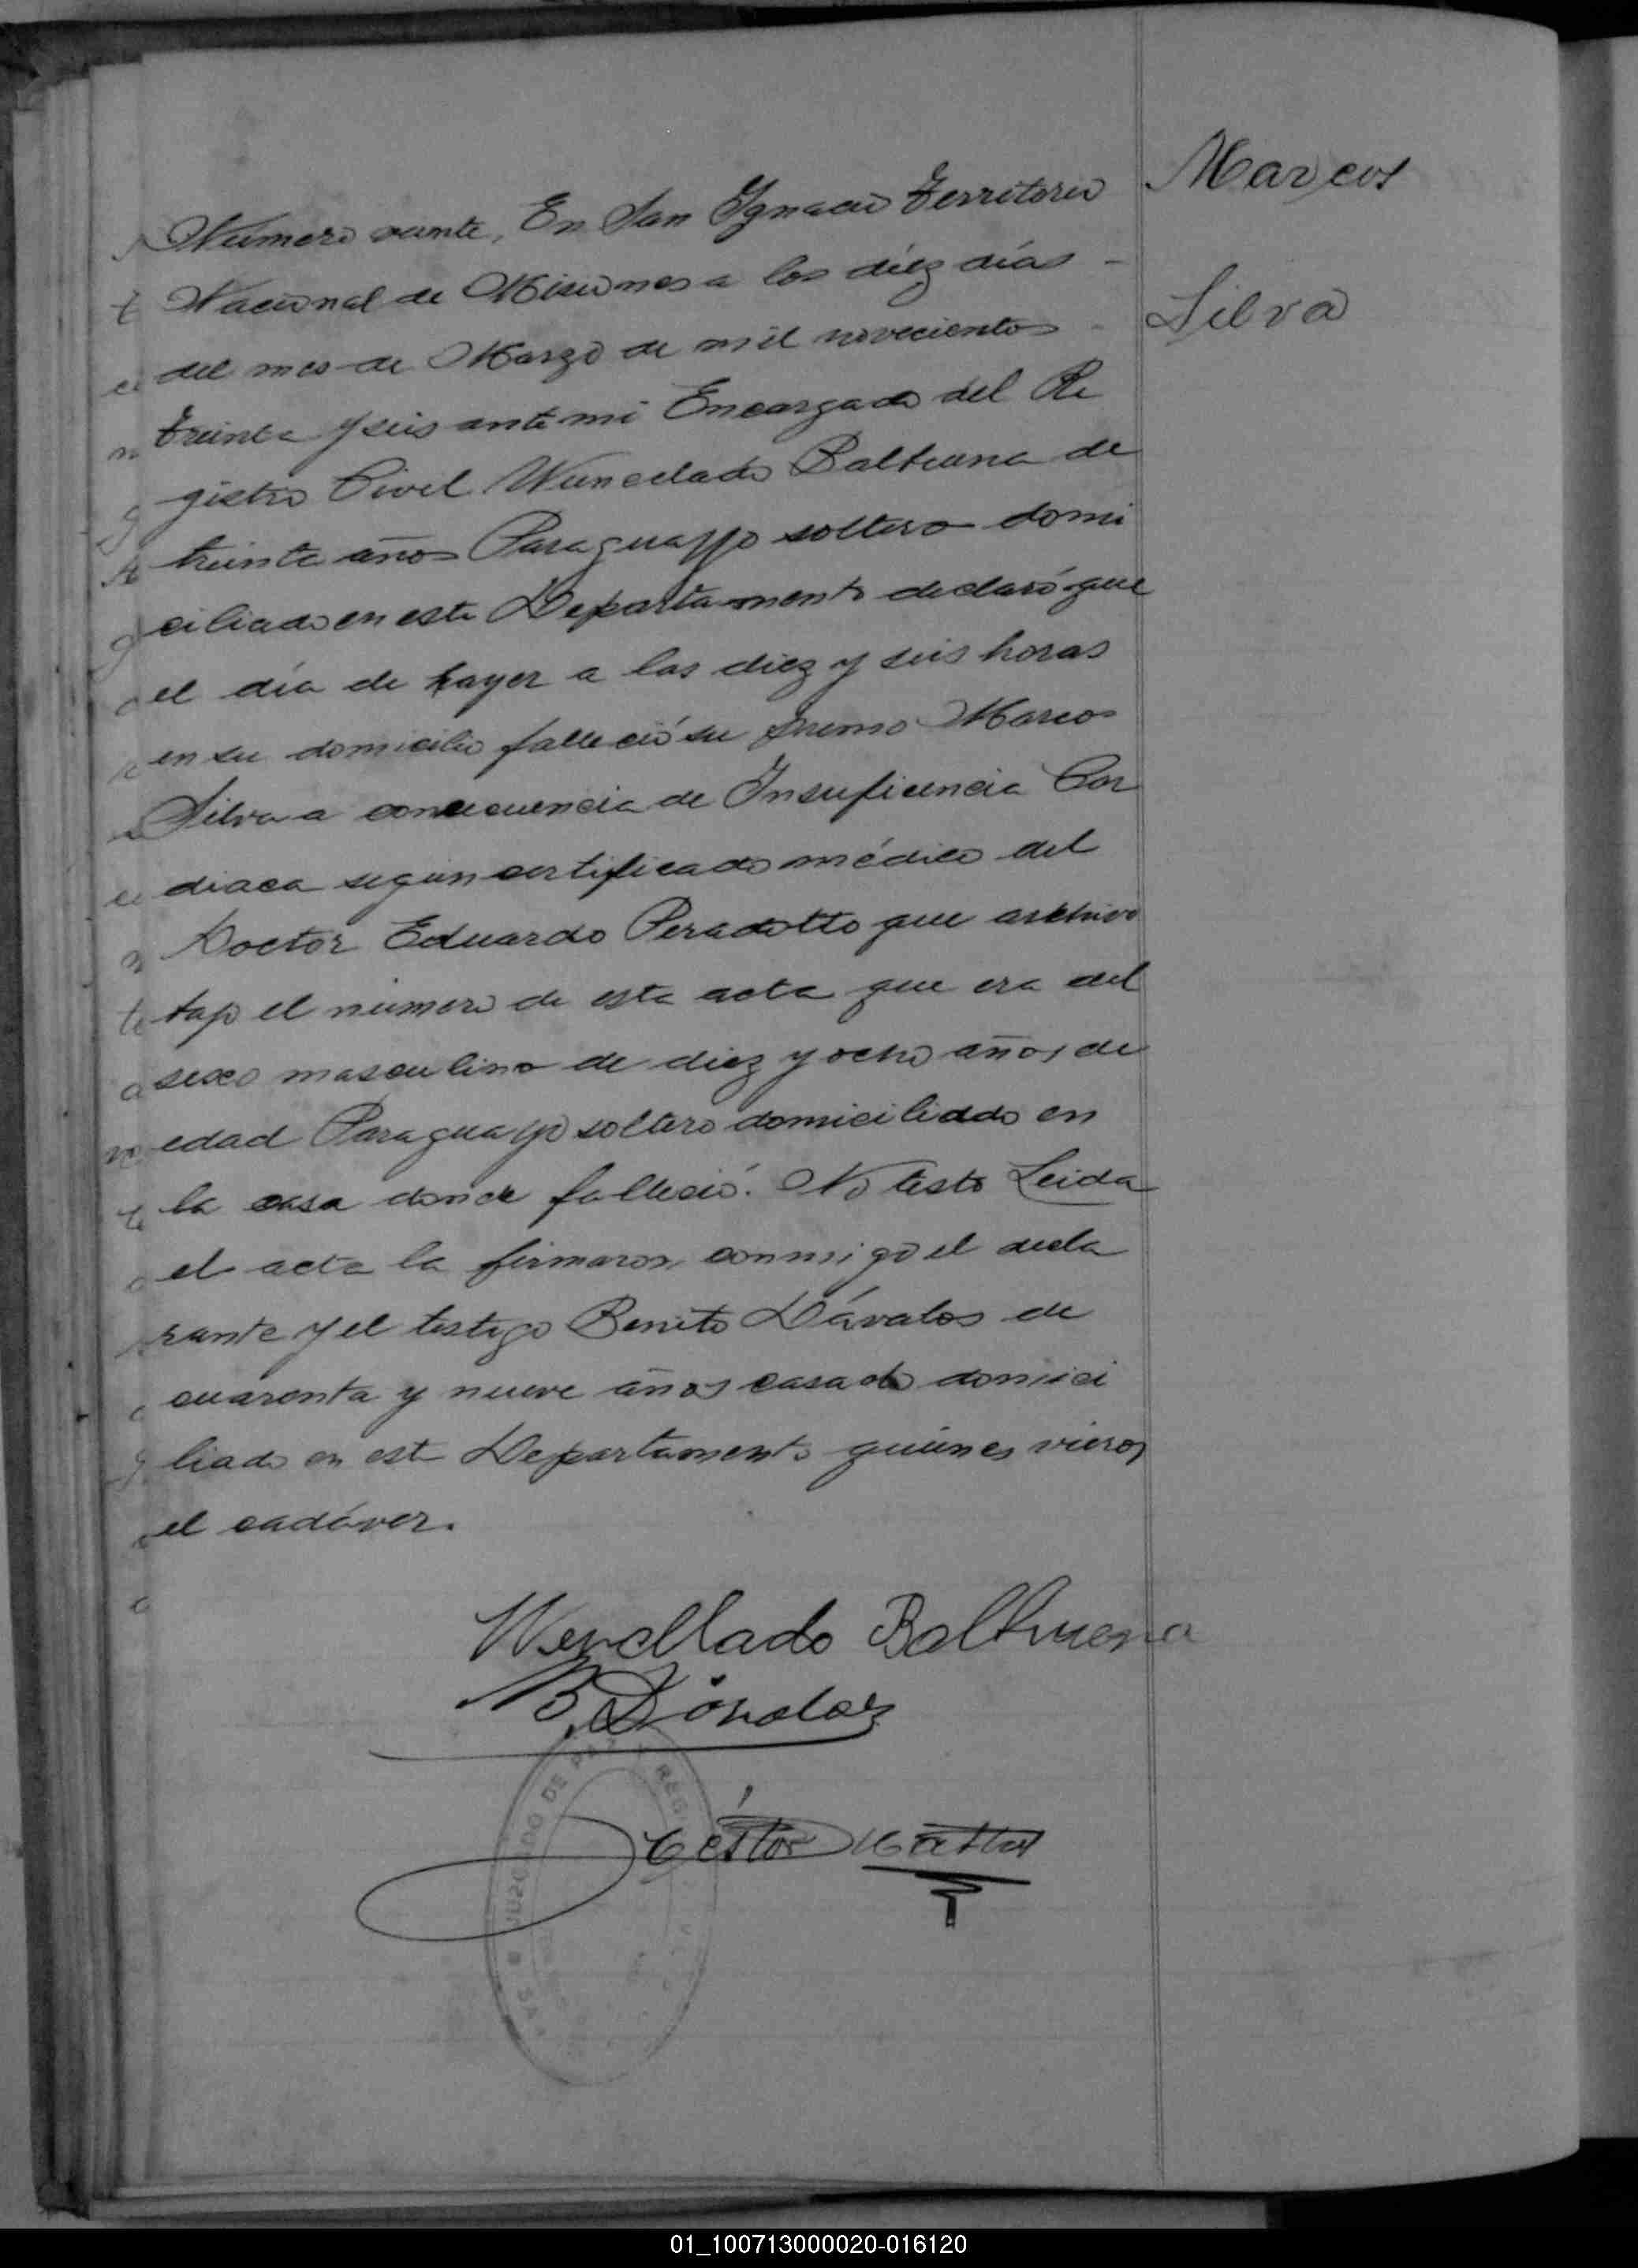 Marcos
Silva
Número veinte, En San Ignacio Territorio
Nacional de Misiones a los diéz días -
del mes de Marzo de mil novecientos -
treinta y seis ante mi Encargado del Re
gistro Civil Wuncelado Baltuena de
treinta años Paraguayo soltero domi
ciliado en este Departamento declaró que
el día de hayer a las diez y seis horas
en su domicilio falleció su primo Marcos
Silva a consecuencia de Insuficiencia Car
diaca según certificado médico del
Doctor Eduardo Peradotto que archivo
bajo el número de esta acta que era del
sexo masculino de diez y ocho años de
edad Paraguayo soltero domiciliado en
la casa donde falleció. No testó Leida
el acta la firmaron conmigo el decla
rante y el testigo Benito Dávalos de
cuarenta y nueve años casado domici
liado en este Departamento quiénes vieron
el cadáver.
Wencellado Baltruena
B. Dávalos
Néstor
JUZGADO DE PAZ REGI
01_100713000020-016120